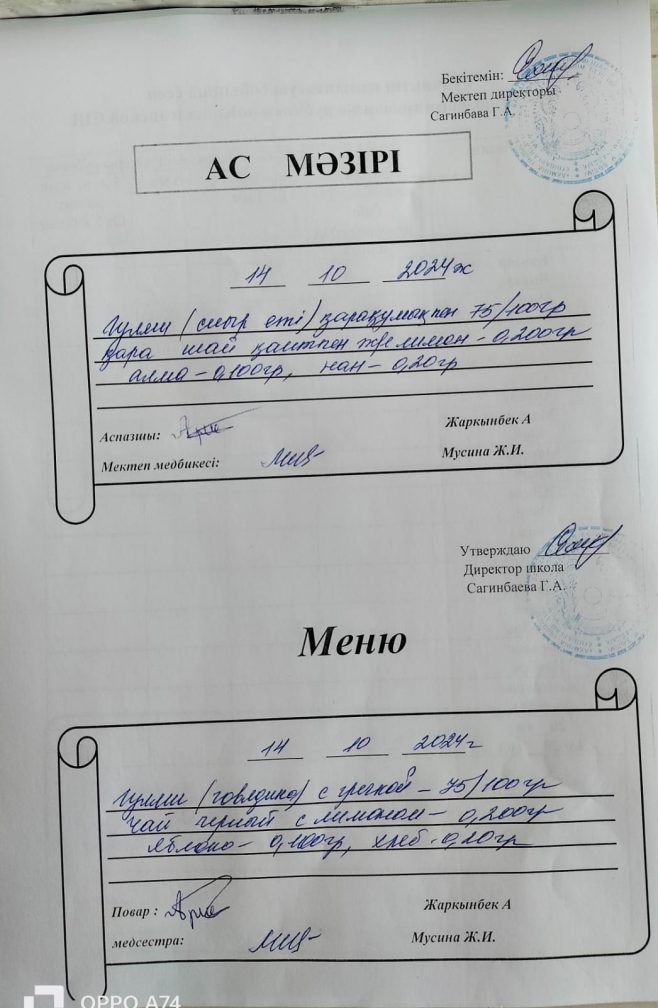 Бекітемін:
Мектеп директоры
Сагинбава Г.А.
АС МӘЗІРІ
14 10 2024ж
Гуляш (сиыр еті) қарақұмықпен 75/100гр
қара шай қантпен және лимон - 0,200гр
алма - 0,100гр, нан - 0,20гр
Аспазшы: Жаркынбек А
Мектеп медбикесі: Мусина Ж.И.
Утверждаю
Директор школа
Сагинбаева Г.А.
Меню
14 10 2024г
Гуляш (говядина) с гречкой - 75/100гр
Чай черный с лимоном - 0,200гр
Яблоко - 0,100гр, хлеб - 0,20гр
Повар : Жаркынбек А
медсестра: Мусина Ж.И.
OPPO A74